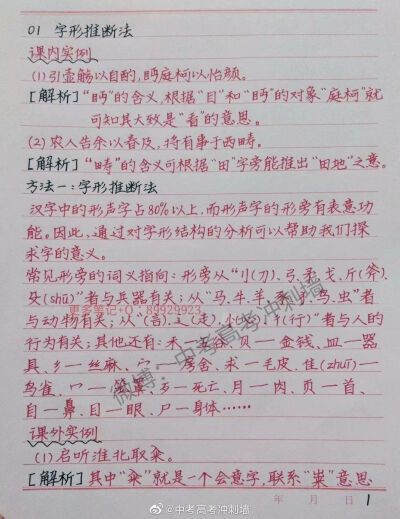 01 字形推断法
课内实例
(1)引壶觞以自酌,眄庭柯以怡颜。
[解析]"眄"的含义,根据"目"和"眄"的对象"庭柯"就
可知其大致是"看"的意思。
(2)农人告余以春及,将有事于西畴。
[解析]"畴"的含义可根据"田"字旁能推出"田地"之意。
方法一:字形推断法
汉字中的形声字占80%以上,而形声字的形旁有表意功
能。因此,通过对字形结构的分析可以帮助我们探
求字的意义。
常见形旁的词义指向:形旁从"刂(刀)、弓、矛、戈、斤(斧)、
殳(shū)"者与兵器有关;从"马、牛、羊、犭、鸟、虫"者
更多笔记+Q:89929923
与动物有关;从"讠(言)、辶(走)、小(心)、彳(行)"者与人的
行为有关;其他还有:禾—五谷、贝—金钱、皿—器
具、纟—丝麻、宀—房舍、求—毛皮、隹(zhuī)—
鸟雀、歹—死亡、月—肉、页—首、
自—鼻、目—眼、尸—身体……
微博:中考高考冲刺墙
课外实例
(1)启听淮北取籴。
[解析]其中"籴"就是一个会意字,联系"粜"意思
年 月 日 1
@中考高考冲刺墙